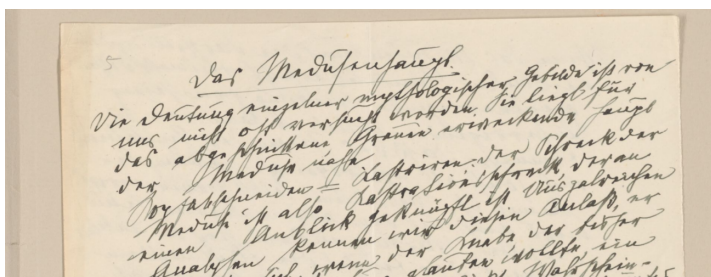 5
Das Medusenhaupt.
Die Deutung einzelner mythologischer Gebilde ist von
uns nicht oft versucht worden. Sie liegt für
das abgeschnittene Grauen erweckende Haupt
der Meduse nahe.
Kopfabschneiden = Kastriren. Der Schreck der
Meduse ist also Kastrationsschreck, der an
einen Anblick geknüpft ist. Aus zalreichen
Analysen kennen wir diesen Anlaß, er
wenn der Knabe der bisher
glauben wollte, ein
Wahrschein-